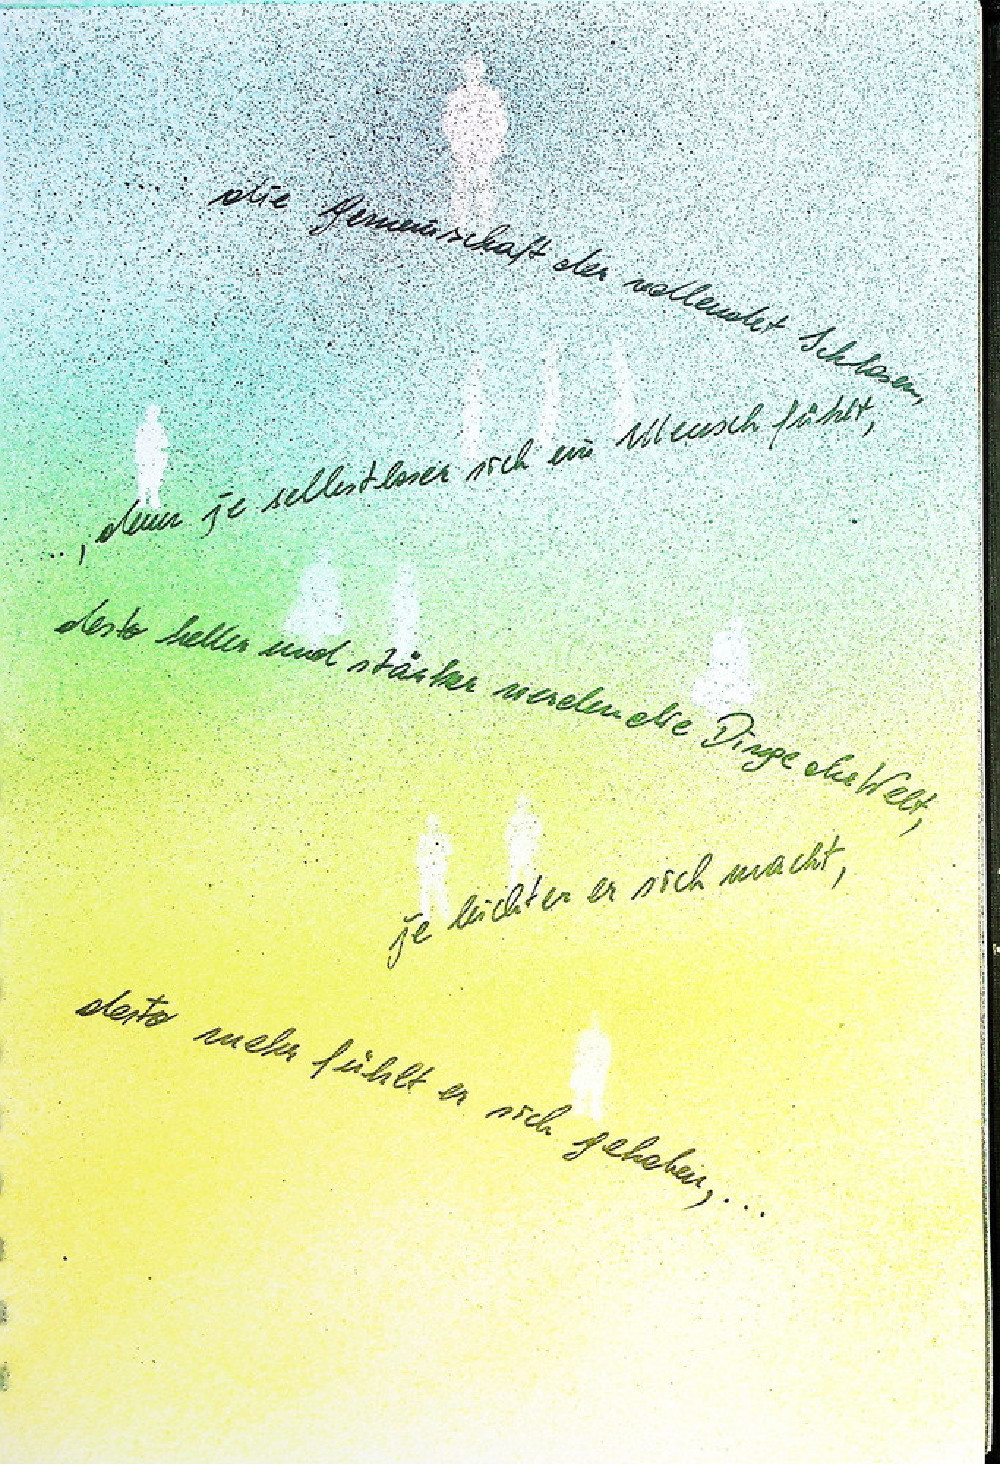 .... die Gemeinschaft der vollendet Schlosen,
.., denn je selbstloser sich ein Mensch fühlt,
desto heller und stärker werden die Dinge der Welt,
je leichter er sich macht,
desto mehr fühlt er sich gehoben,...